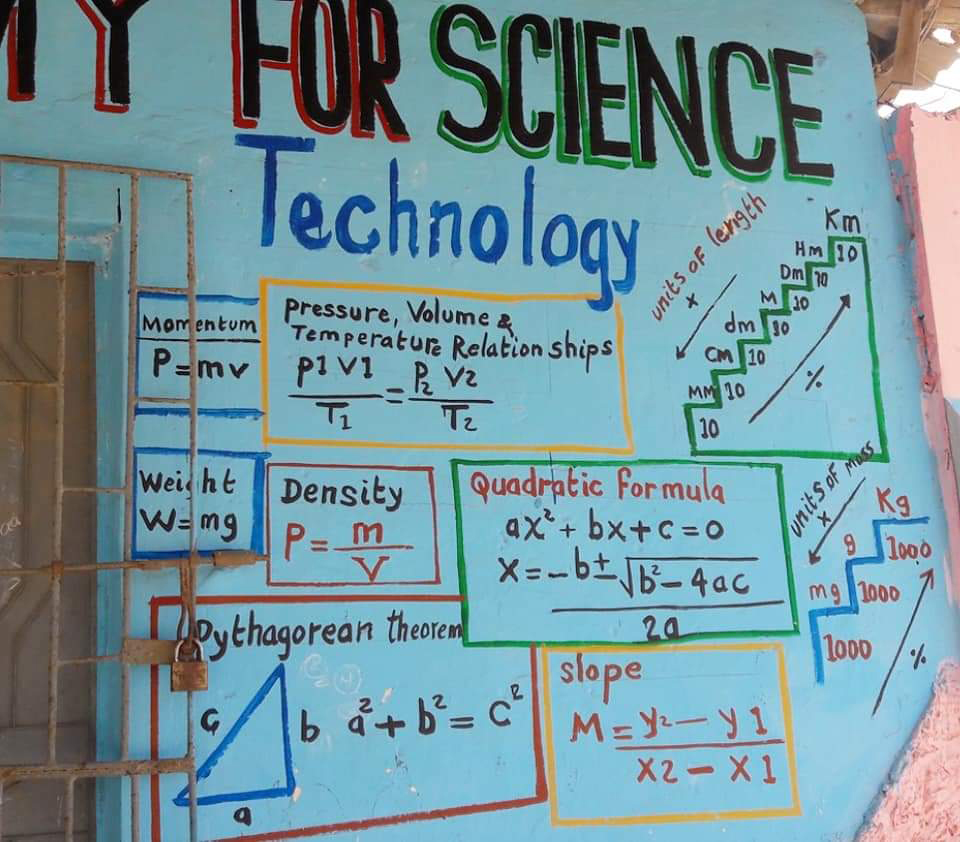 FOR SCIENCE
Technology
Momentum
P = mv
Pressure, Volume &
Temperature Relationships
P1 V1 = P2 V2
T1 T2
units of length
x
Km
Hm 10
Dm 10
M 10
dm 10
CM 10
MM 10
10
%
Weight
W = mg
Density
P = m
V
Quadratic formula
ax² + bx + c = 0
X = -b ± √b² - 4ac
2a
units of mass
x
Kg
g 1000
mg 1000
1000
%
Pythagorean theorem
c b a² + b² = c²
a
slope
M = y2 - y1
x2 - x1